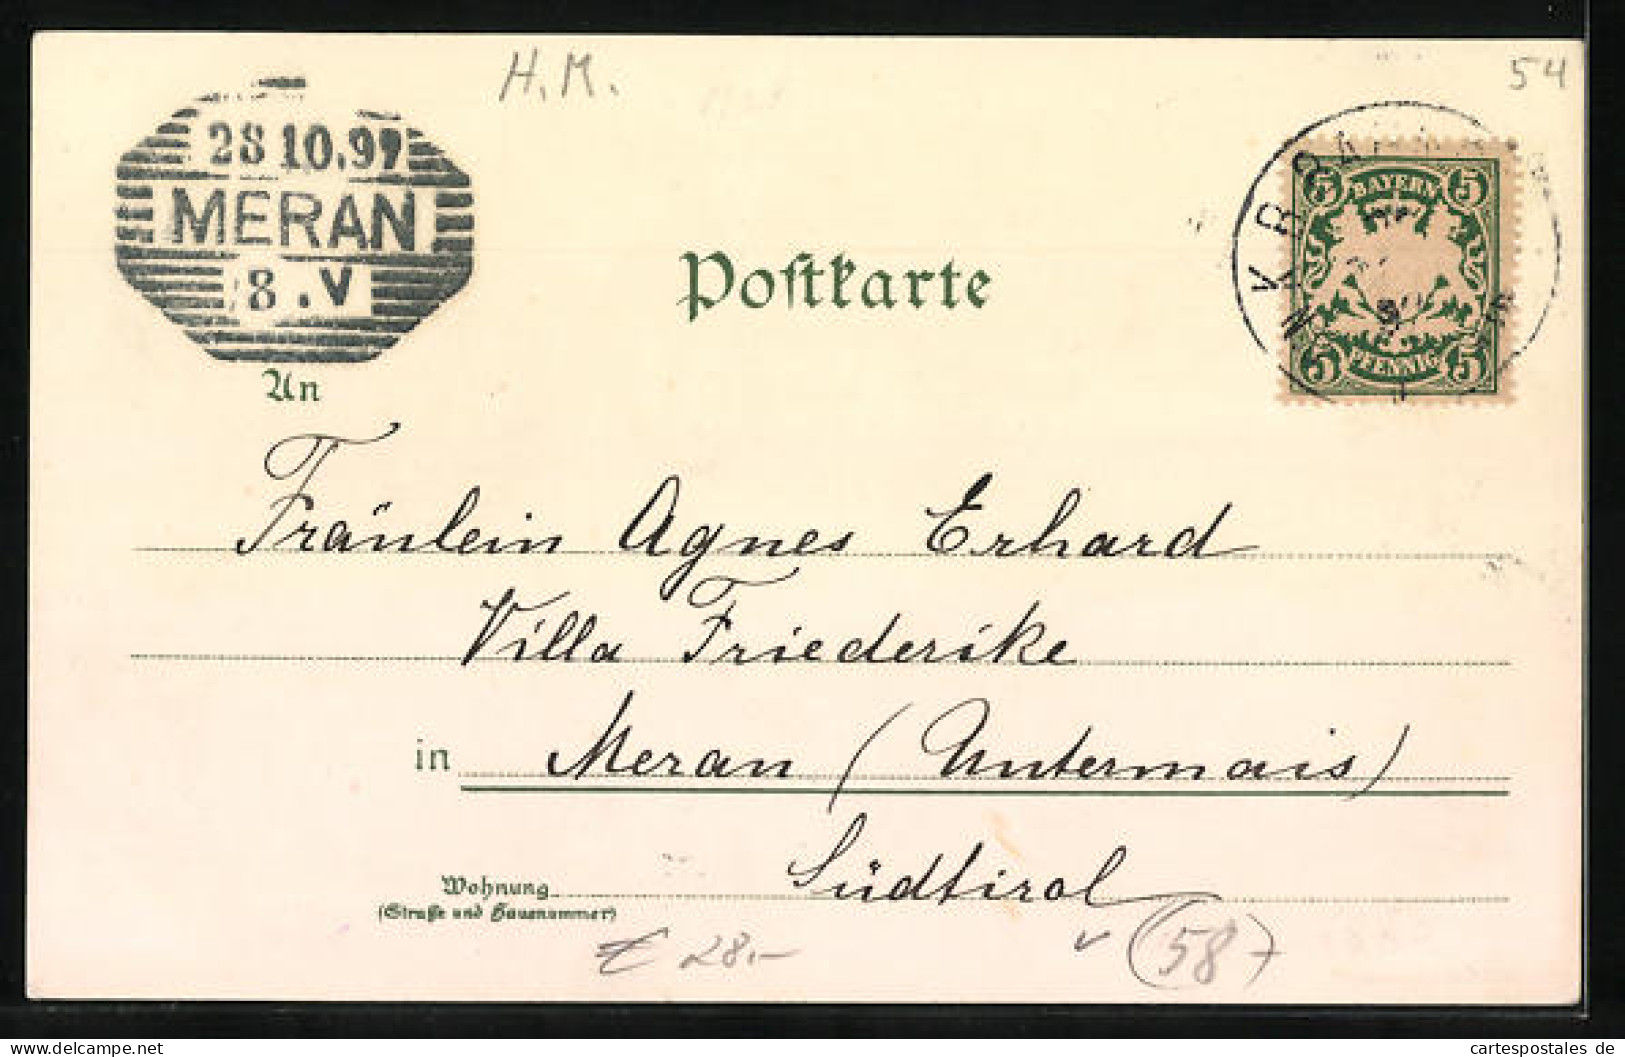 H.M.
54
28 10.97
MERAN
8.V
5 BAYERN 5
5 PFENNIG 5
Postkarte
An
Fräulein Agnes Erhard
Villa Friederike
in Meran (Untermais)
Südtirol
Wohnung
(Straße und Hausnummer)
€ 28.-
58
www.delcampe.net
cartespostales de